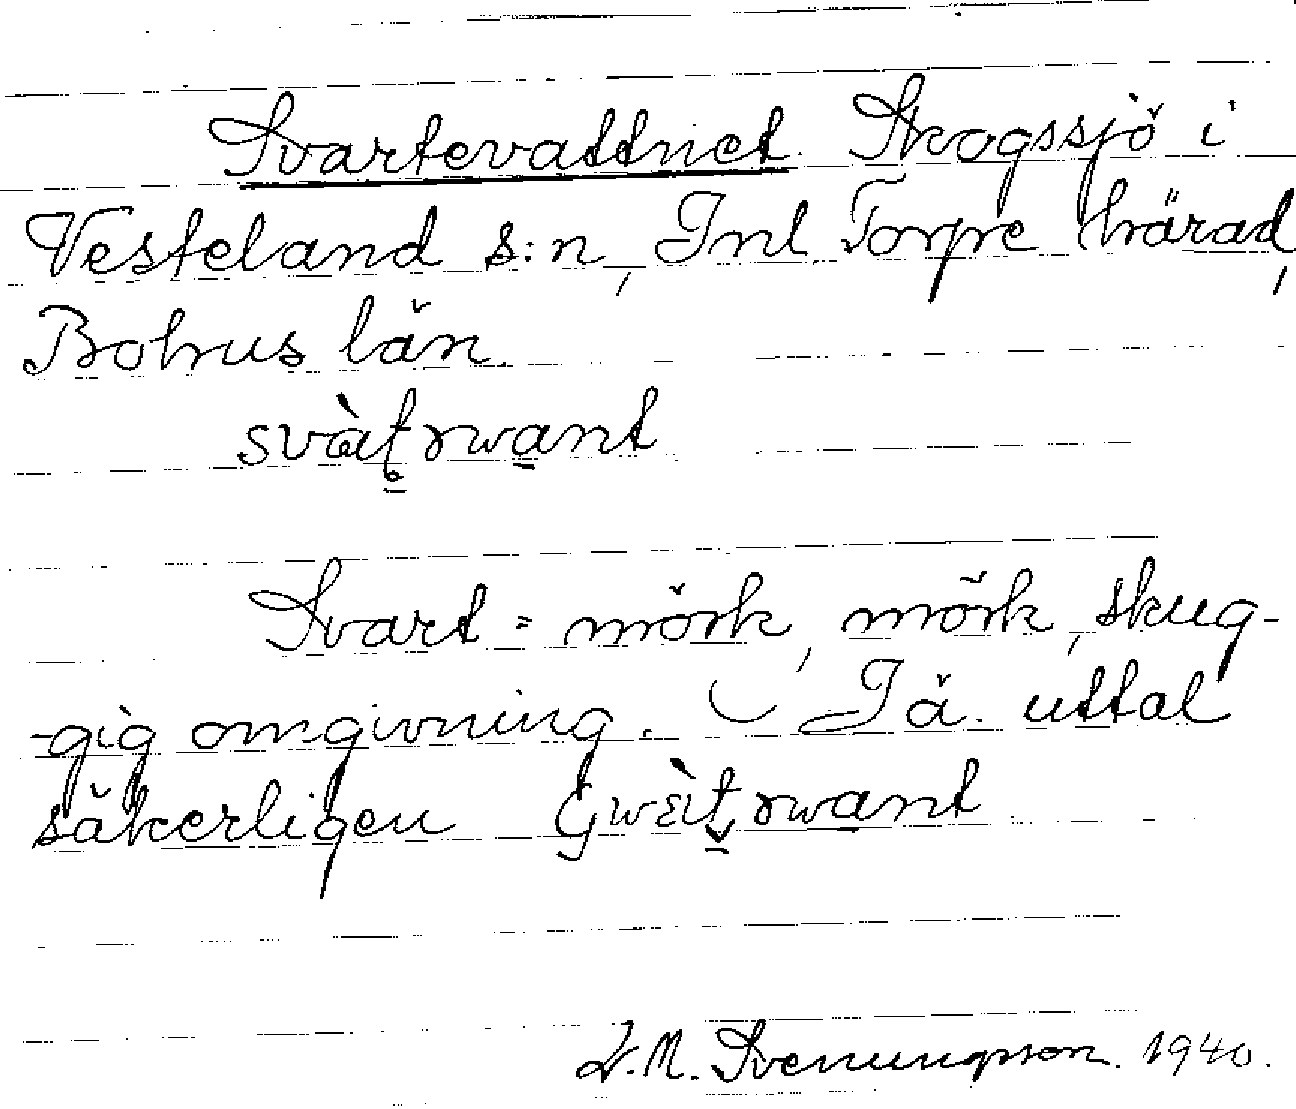 Svartevattnet. Skogssjö i
Vesteland s:n, Inl. Torpe härad,
Bohus län.
svàt̥rwant
Svart = mörk, mörk, skug-
-gig omgivning. Iä. uttal
säkerligen Gwɛ̀it̬rwant
M. Svenungsson. 1940.